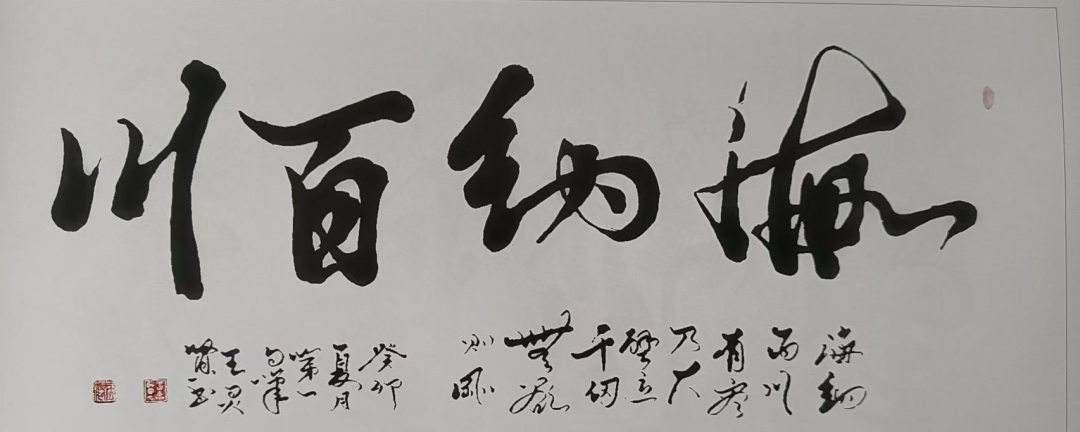 海纳百川
海纳
百川
有容
乃大
壁立
千仞
無欲
则刚
癸卯
夏月
第一
王灵